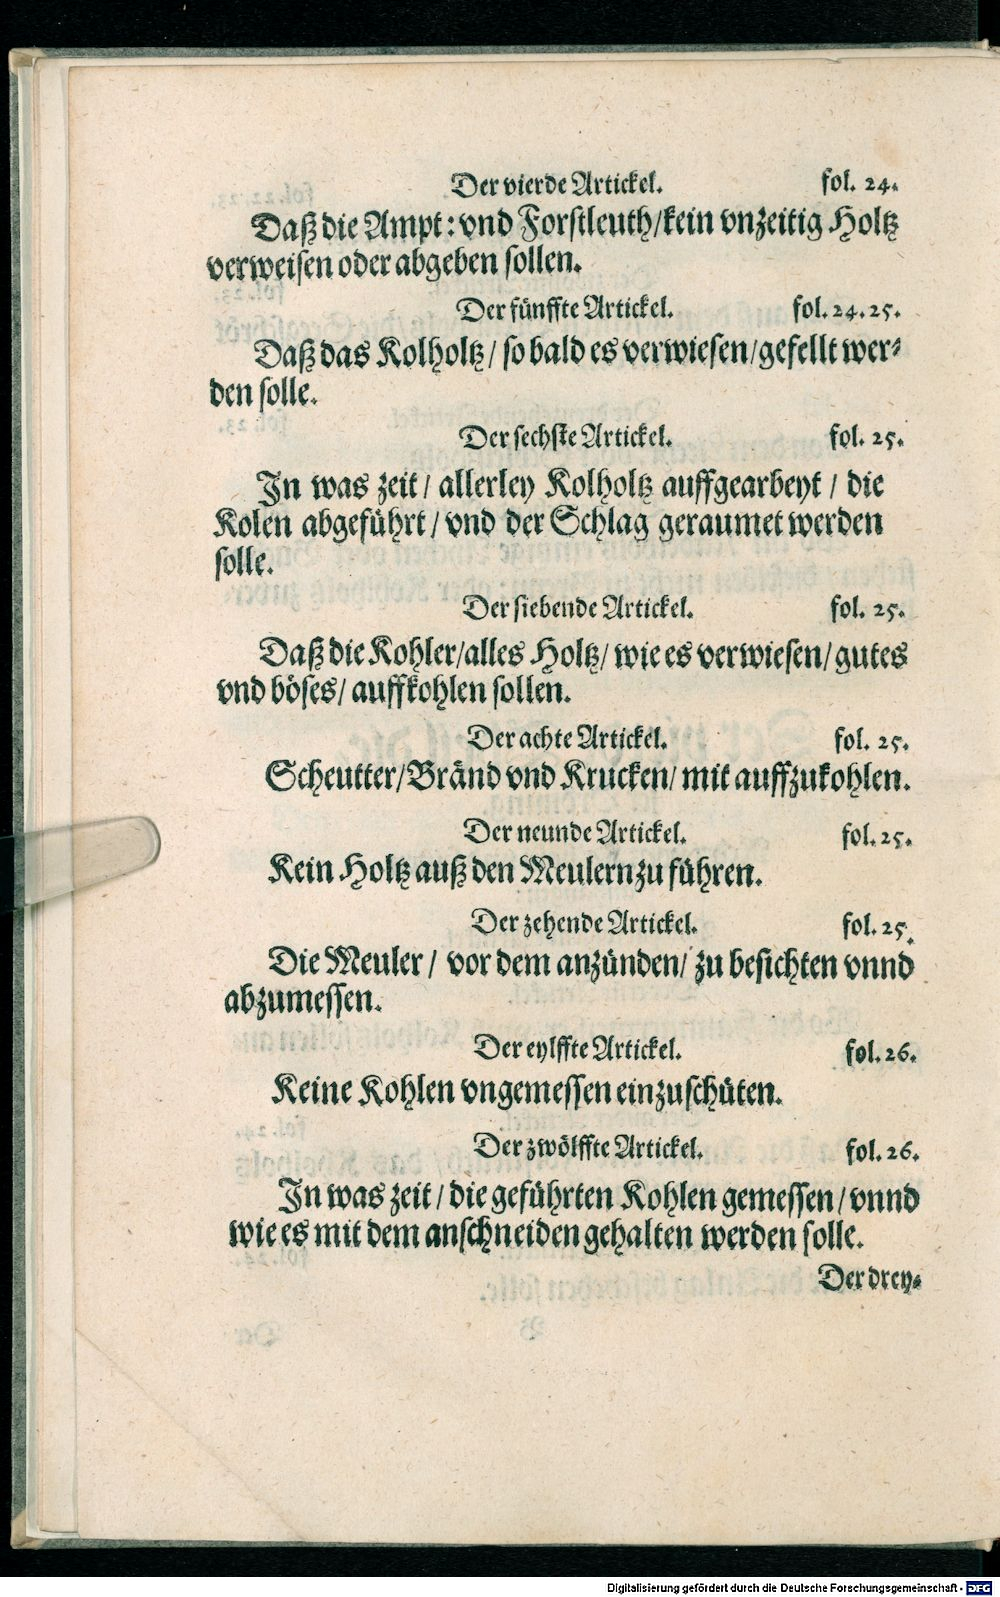 Der vierde Artickel. fol. 24.
Daß die Ampt: vnd Forstleuth/kein vnzeitig Holtz
verweisen oder abgeben sollen.
Der fünffte Artickel. fol. 24. 25.
Daß das Kolholtz/ so bald es verwiesen/gefellt wer⸗
den solle.
Der sechste Artickel. fol. 25.
In was zeit/ allerley Kolholtz auffgearbeyt/ die
Kolen abgeführt/ vnd der Schlag geraumet werden
solle.
Der siebende Artickel. fol. 25.
Daß die Kohler/alles Holtz/ wie es verwiesen/ gutes
vnd böses/ auffkohlen sollen.
Der achte Artickel. fol. 25.
Scheutter/Bränd vnd Krucken/ mit auffzukohlen.
Der neunde Artickel. fol. 25.
Kein Holtz auß den Meulern zu führen.
Der zehende Artickel. fol. 25.
Die Meuler/ vor dem anzünden/ zu besichten vnnd
abzumessen.
Der eylffte Artickel. fol. 26.
Keine Kohlen vngemessen einzuschüten.
Der zwölffte Artickel. fol. 26.
In was zeit/ die geführten Kohlen gemessen/ vnnd
wie es mit dem anschneiden gehalten werden solle.
Der drey⸗
Digitalisierung gefördert durch die Deutsche Forschungsgemeinschaft - DFG